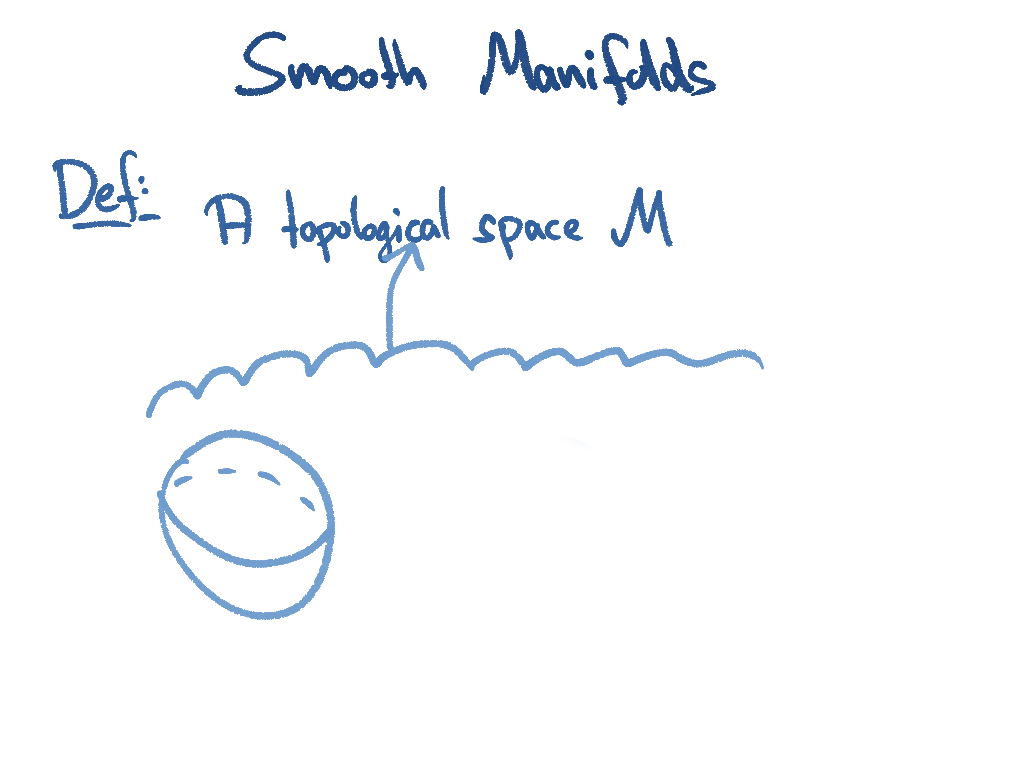 Smooth Manifolds
Def:
A topological space M